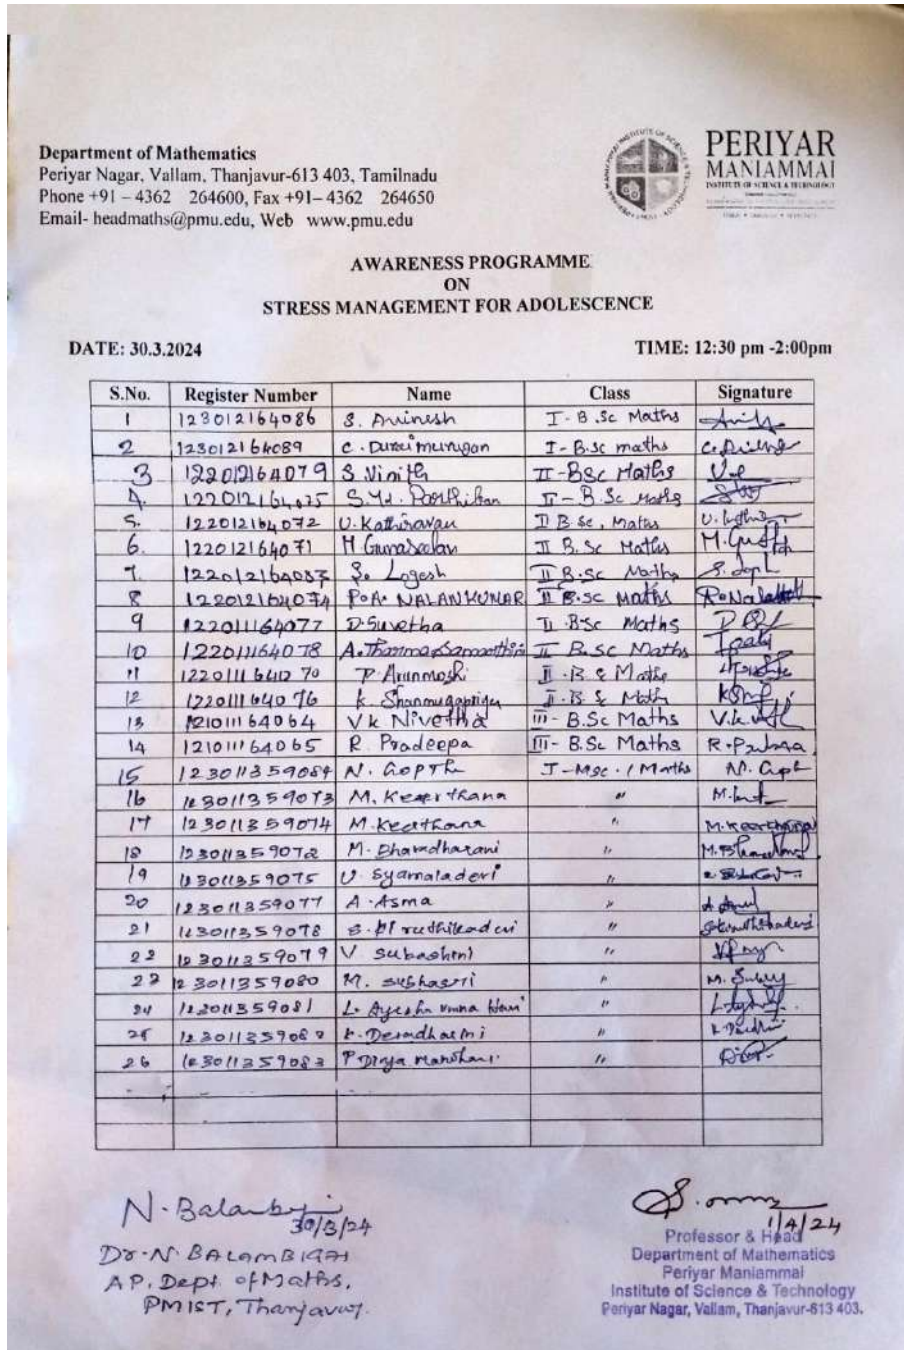 Department of Mathematics
Periyar Nagar, Vallam, Thanjavur-613 403, Tamilnadu
Phone +91 – 4362 264600, Fax +91– 4362 264650
Email- headmaths@pmu.edu, Web www.pmu.edu
PERIYAR
MANIAMMAI
INSTITUTE OF SCIENCE & TECHNOLOGY
AWARENESS PROGRAMME
ON
STRESS MANAGEMENT FOR ADOLESCENCE
DATE: 30.3.2024 TIME: 12:30 pm -2:00pm
S.No. Register Number Name Class Signature
1 123012164086 S. Avinesh I - B.Sc Maths
2 123012164089 C. Duraimurugan I - B.Sc maths
3 122012164079 S. Vinith II - BSc Maths
4. S.Md. Parthiban II - B.Sc Maths
5. 122012164072 U. Kathiravan II B.Sc, Maths
6. 122012164071 M. Gunaseelan II B.Sc Maths
7. S. Logesh II B.Sc Maths
8 122012164074 P.A. NALANKUMAR II B.Sc Maths
9 122011164077 D. Suvetha II - BSc Maths
10 122011164078 II B.Sc Maths
11 P. Arunmozhi II - B.Sc Maths
12 122011164076 K. Shanmugapriya II - B.Sc Math
13 121011164064 V.K Nivetha III - B.Sc Maths
14 121011164065 R. Pradeepa III - B.Sc Maths R. Pradeepa
15 123011359084 N. GOPTH I - Msc. / Maths
16 123011359073 M. Keerthana "
17 123011359074 M. Keerthana " M. Keerthana
18 123011359072 M. Bharadharani "
19 123011359075 U. Syamaladevi "
20 123011359077 A. Asma "
21 123011359078 "
22 123011359079 V. Subashini "
23 123011359080 M. Subhasri "
24 123011359081 L. Ayesha "
25 K. Devadharini "
26 123011359083 P Divya "
30/3/24
Dr. N. BALAMBIGAI
AP. Dept. of Maths,
PMIST, Thanjavur.
1/4/24
Professor & Head
Department of Mathematics
Periyar Maniammai
Institute of Science & Technology
Periyar Nagar, Vallam, Thanjavur-613 403.